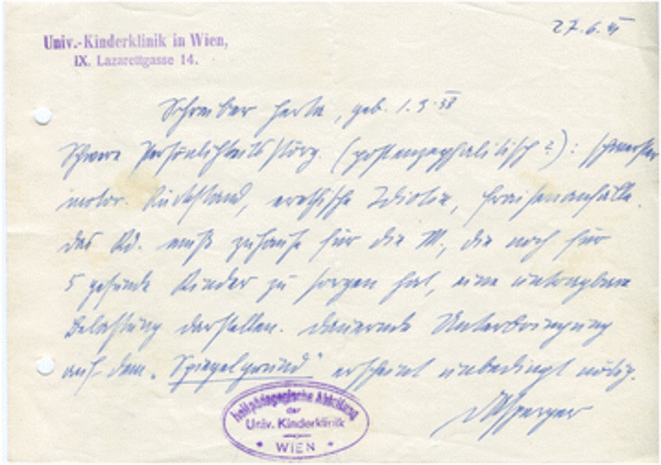 Univ.-Kinderklinik in Wien,
IX. Lazarettgasse 14.
27.6.41
Schreiber Herta, geb. 1.9.38
Schwere Persönlichkeitsstörg. (postenzephalitisch?): schwerster
motor. Rückstand, erethische Idiotie, Fraisenanfälle.
Das Kd. muß zuhause für die M., die noch für
5 gesunde Kinder zu sorgen hat, eine untragbare
Belastung darstellen. Dauernde Unterbringung
auf dem „Spiegelgrund" erscheint unbedingt nötig.
DAsperger
heilpädagogische Abteilung
der
Univ. Kinderklinik
* WIEN *